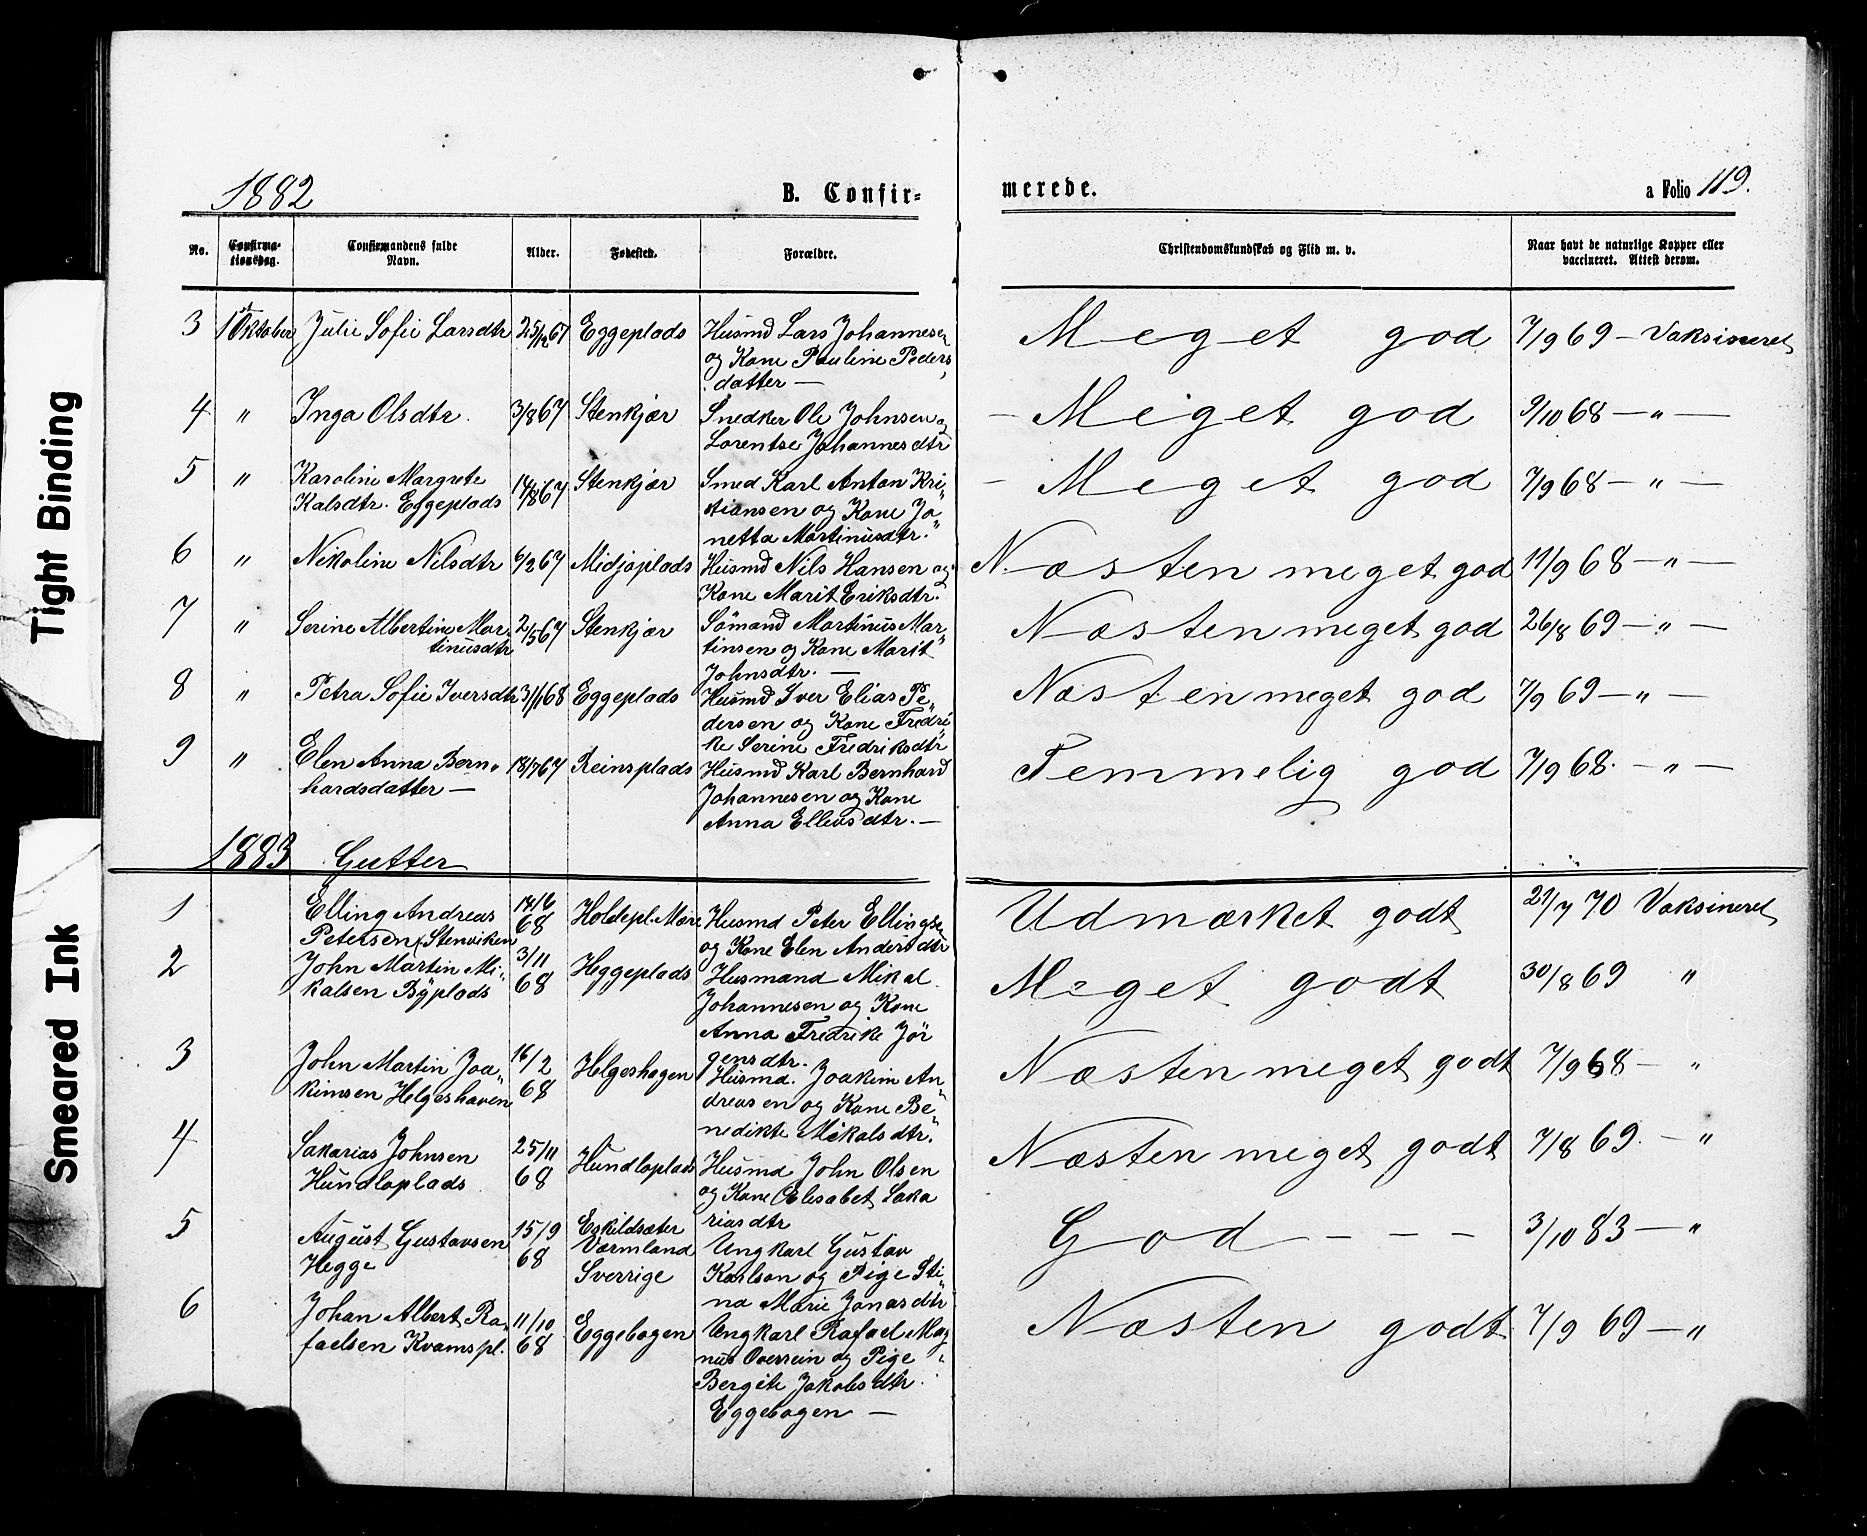 Tight Binding
Smeared Ink
1882
B. Confir-
merede.
a Folio 119.
No.
Confirma-
tionsdag.
Confirmandens fulde
Navn.
Alder.
Fødested.
Forældre.
Christendomskundskab og Flid m. v.
Naar havt de naturlige Kopper eller
vaccineret. Attest derom.
3 1 Oktober Julie Sofie Larsdtr 25/12 67 Eggeplads Husmd Lars Johannesen Meget god 7/9 69 — Vaksineret
og Kone Pauline Peders
datter —
4 " Inga Olsdtr. 3/8 67 Stenkjær Snedker Ole Johnsen og — Meget god 9/10 68 — " —
Lorentse Johannesdtr
5 " Karoline Margrete Stenkjær Smed Karl Anton Kri- — Meget god 7/9 68 — " —
Kalsdtr. Eggeplads 14/8 67 stiansen og Kone Jo
netta Martinusdtr."
6 " Nikoline Nilsdtr 6/2 67 Midjoplads Husmd Nils Hansen og Næsten meget god 11/9 68 — " —
Kone Marit Eriksdtr.
7 " Serine Albertine Mar- 2/5 67 Stenkjær Sömand Martinus Mar- Næsten meget god 26/8 69 — " —
tinusdtr tinsen og Kone Marit
Johnsdtr. —
8 " Petra Sofie Iversdtr 31/1 68 Eggeplads Husmd Iver Elias Pe- Næsten meget god 7/9 69 — " —
dersen og Kone Fredri
ke Serine Fredriksdtr
9 " Elen Anna Bern- 18/7 67 Reinsplads Husmd Karl Bernhard Temmelig god 7/9 68. — " —
hardsdatter — Johannesen og Kone
Anna Ellevsdtr. —
1883 Gutter
1 Elling Andreas 14/6 Holdepl. Mære Husmd Peter Ellingsen Udmærket godt 21/7 70 Vaksineret
Petersen (Stenviken 68 og Kone Elen Andersdtr
2 John Martin Mi- 3/11 Heggeplads Husmand Mikal Meget godt 30/8 69 "
kalsen Byplads 68 Johannesen og Kone
Anna Fredrike Jör
gensdtr.
3 John Martin Joa- 16/2 Helgeshagen Husmd. Joakim An- Næsten meget godt 7/9 68 — "
kimsen Helgeshaven 68 dreasen og Kone Be-
nedikte Mikalsdtr.
4 Sakarias Johnsen 25/11 Hundloplads Husmd John Olsen Næsten meget godt 7/8 69. — "
Hundloplads 68 og Kone Elesabet Saka
riasdtr
5 August Gustavsen 15/9 Eskildsæter Ungkarl Gustav God — — — 3/10 83 — "
Hegge 68 Værmland Karlson og Pige Sti-
Sverrige na Marie Jonasdtr
6 Johan Albert Ra- 11/10 Eggebogen Ungkarl Rafael Mag Næsten godt 7/9 69 — "
faelsen Kvamspl. 68 nus Overrein og Pige
Bergite Jakobsdtr.
Eggebogen —